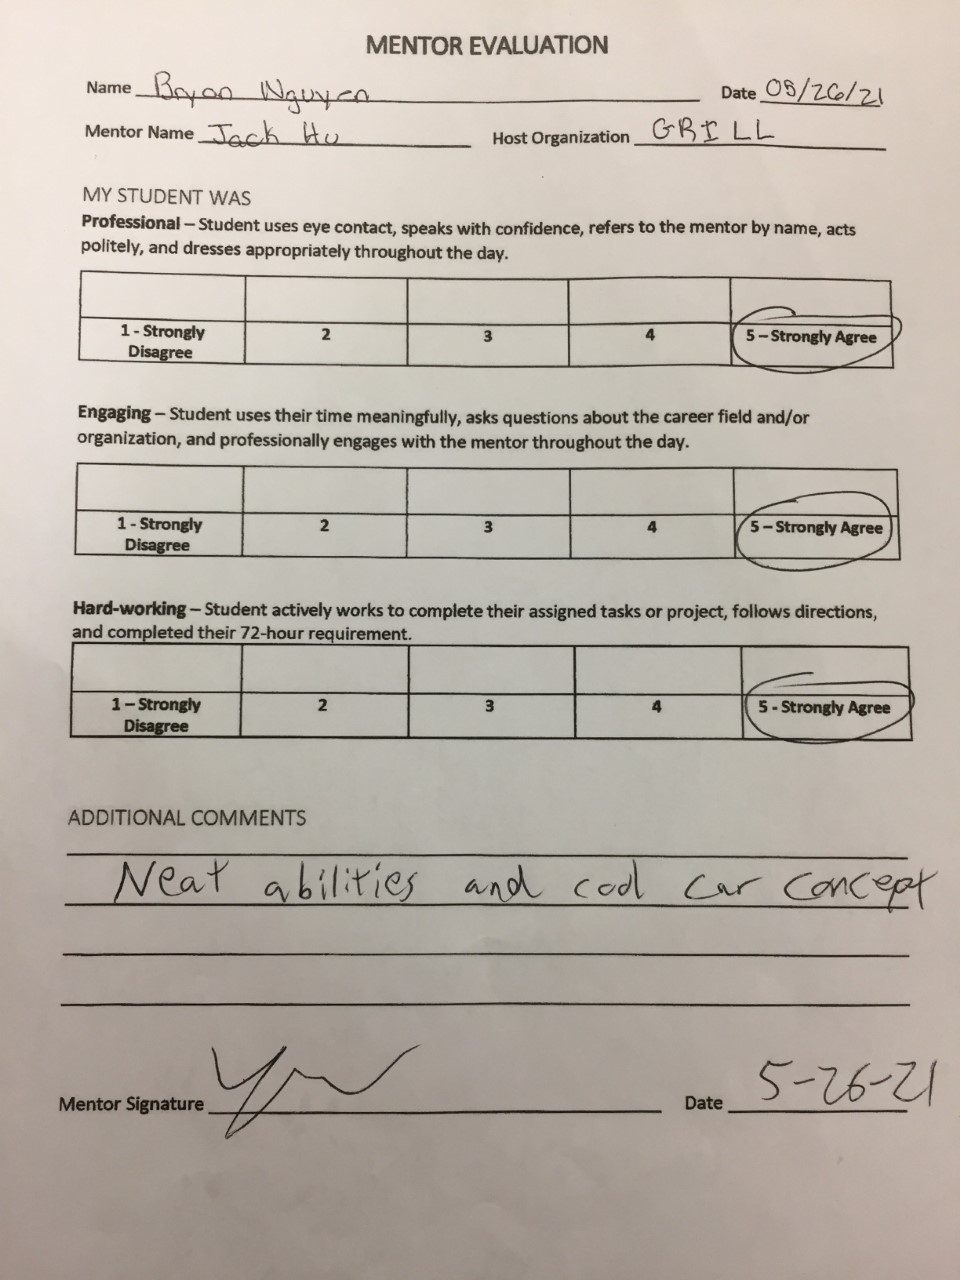 MENTOR EVALUATION
Name Bryan Nguyen Date 05/26/21
Mentor Name Jack Hu Host Organization GRILL
MY STUDENT WAS
Professional – Student uses eye contact, speaks with confidence, refers to the mentor by name, acts
politely, and dresses appropriately throughout the day.
1 - Strongly Disagree 2 3 4 5 – Strongly Agree
Engaging – Student uses their time meaningfully, asks questions about the career field and/or
organization, and professionally engages with the mentor throughout the day.
1 - Strongly Disagree 2 3 4 5 – Strongly Agree
Hard-working – Student actively works to complete their assigned tasks or project, follows directions,
and completed their 72-hour requirement.
1 – Strongly Disagree 2 3 4 5 - Strongly Agree
ADDITIONAL COMMENTS
Neat abilities and cool car concept
Mentor Signature Date 5-26-21